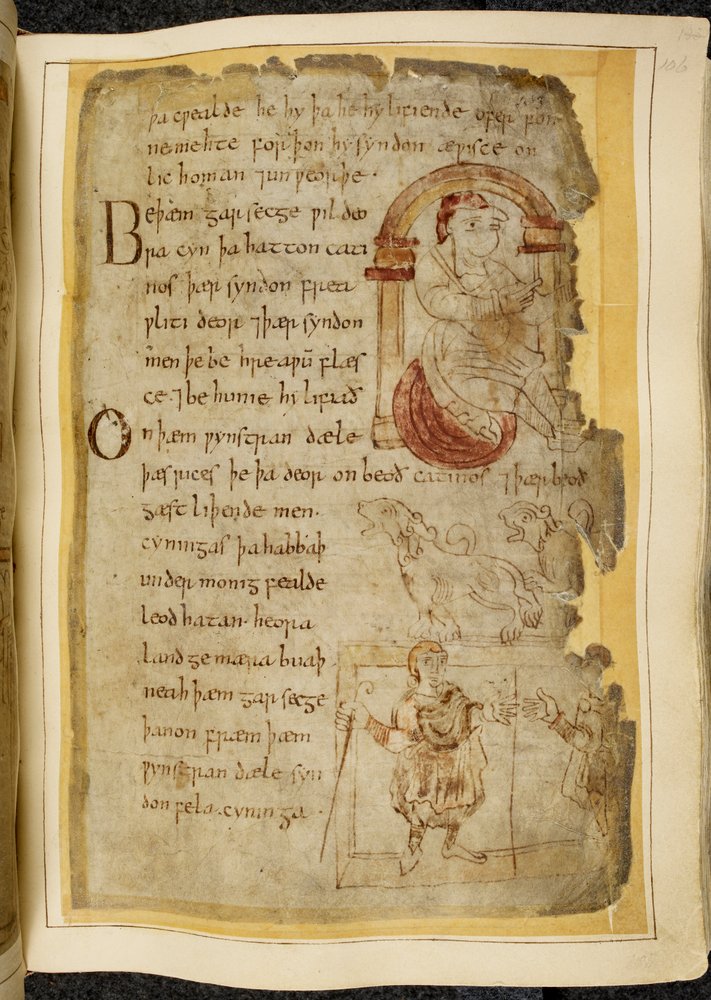 þa cƿealde he hy þa he hy lifiende oferfon
ne mehte forþon hy syndon æƿisce on
lic homan ⁊ unƿeorþe·
Be þæm garsecge ƿildeo
ra cyn þa hatton cati
nos þær syndon freaƿliti
ƿliti deor ⁊ þær syndon
men þe be hreaƿū flæs
ce ⁊ be hunie hy lifiað
On þæm ƿynstran dæle
þæs rices þe þa deor on beoð catinos ⁊ þær beoð
gæst liþende men·
cyningas þa habbaþ
under monig fealde
leod hatan· heora
land gemæra buaþ
neah þæm garsecge
þanon fræm þæm
ƿynstran dæle syn
don fela cyninga·
106